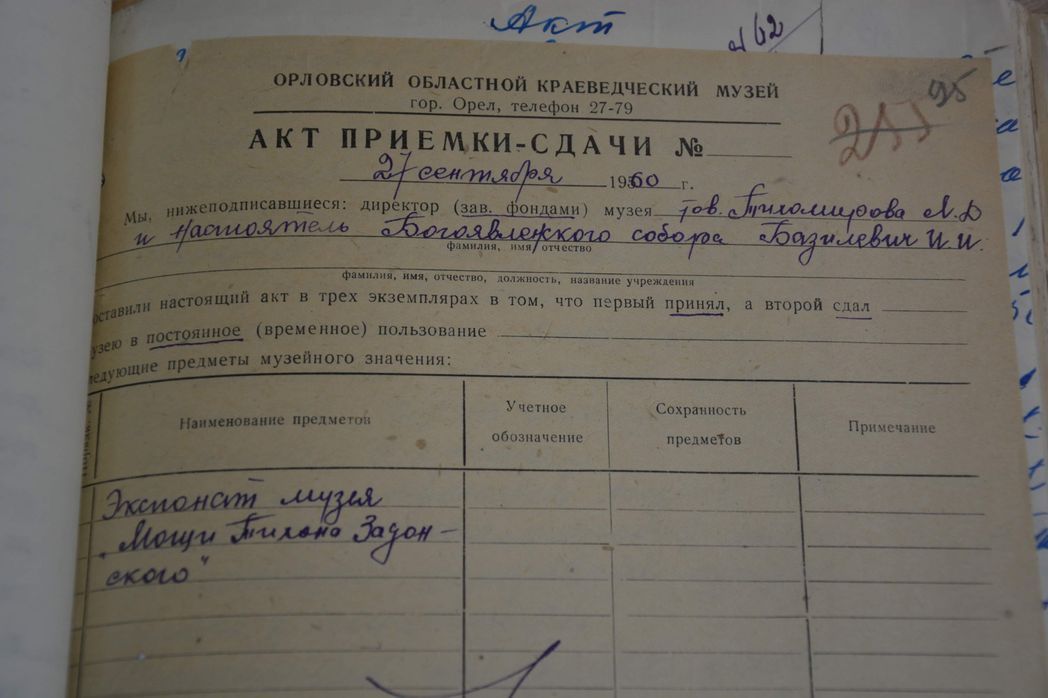 Акт
№ 62
ОРЛОВСКИЙ ОБЛАСТНОЙ КРАЕВЕДЧЕСКИЙ МУЗЕЙ
95
гор. Орел, телефон 27-79
АКТ ПРИЕМКИ-СДАЧИ №
27 сентября 1960 г.
Мы, нижеподписавшиеся: директор (зав. фондами) музея тов. Тихомирова Л.Д
и настоятель Богоявленского собора Базилевич И.И.
фамилия, имя, отчество
фамилия, имя, отчество, должность, название учреждения
оставили настоящий акт в трех экземплярах в том, что первый принял, а второй сдал
узею в постоянное (временное) пользование
ледующие предметы музейного значения:
Наименование предметов Учетное обозначение Сохранность предметов Примечание
Экспонат музея
„Мощи Тихона Задон-
ского"